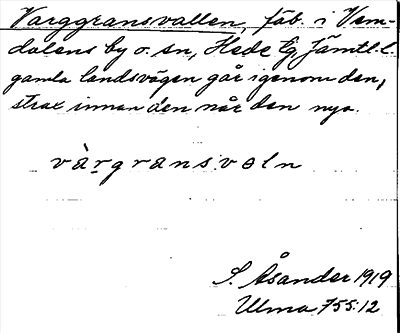 Varggransvallen, fäb. i Vem-
dalens by o. sn, Hede tg, Jämtl. L.
gamla landsvägen går igenom den,
strax innan den når den nya.
vàrgransvoln
S. Åsander 1919
Ulma 755:12